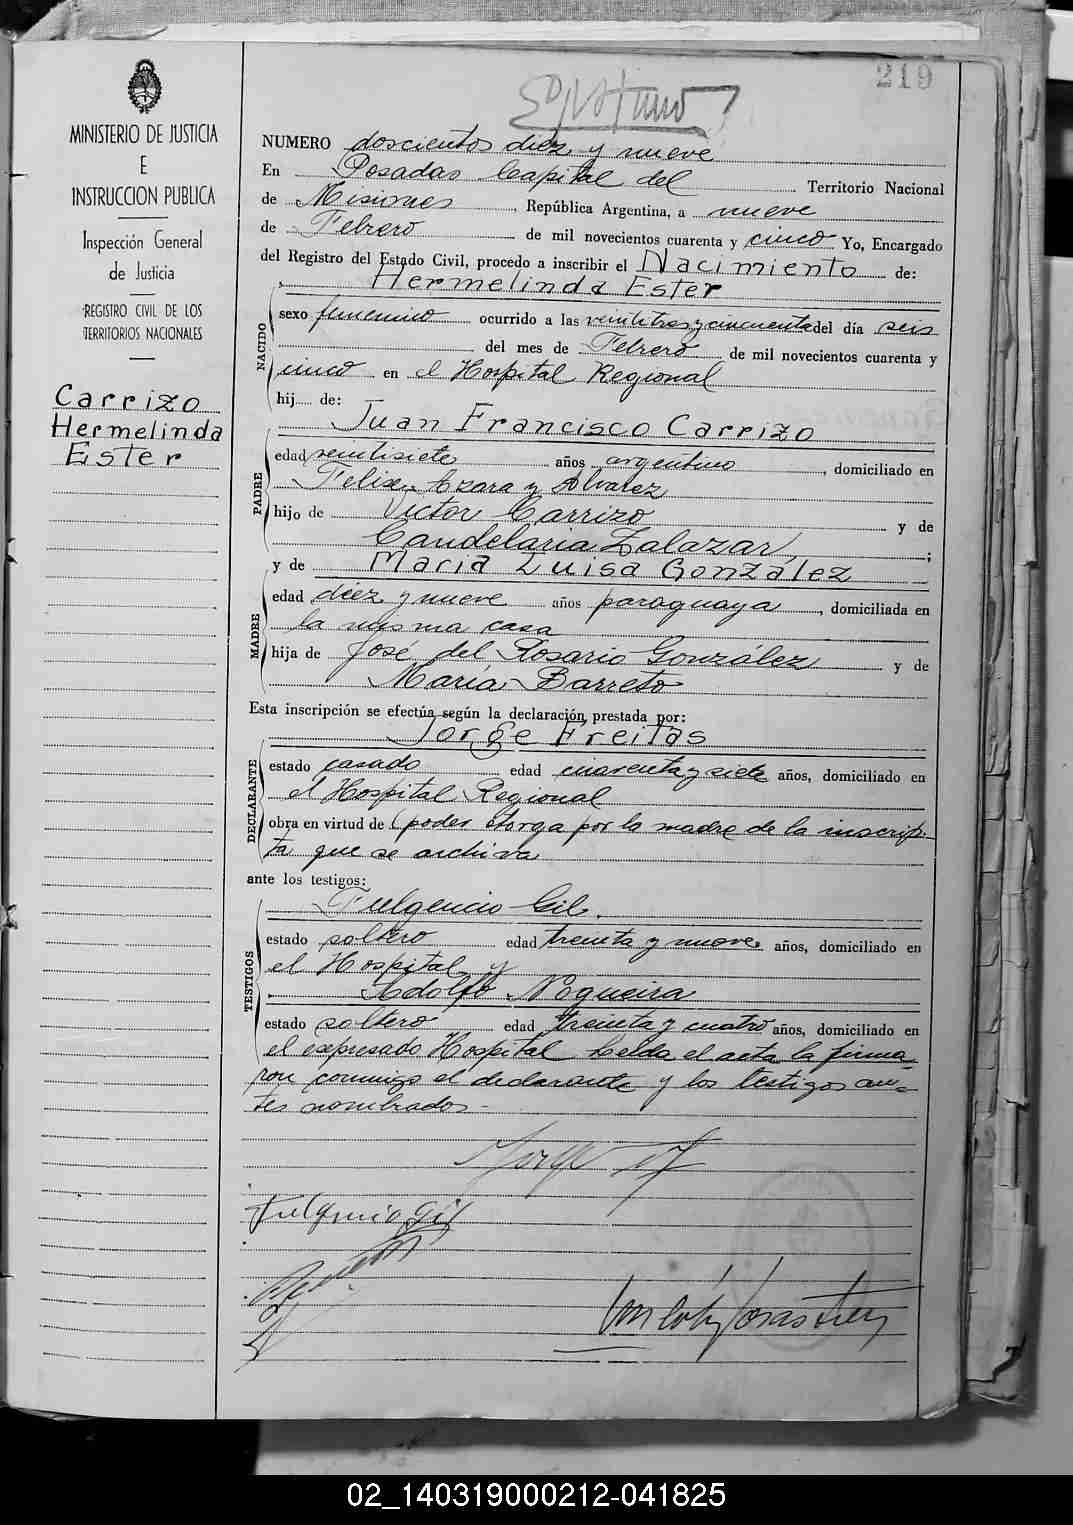 219
MINISTERIO DE JUSTICIA
E
INSTRUCCION PUBLICA
Inspección General
de Justicia
REGISTRO CIVIL DE LOS
TERRITORIOS NACIONALES
Carrizo
Hermelinda
Ester
NUMERO doscientos diez y nueve
En Posadas Capital del Territorio Nacional
de Misiones, República Argentina, a nueve
de Febrero de mil novecientos cuarenta y cinco Yo, Encargado
del Registro del Estado Civil, procedo a inscribir el Nacimiento de:
Hermelinda Ester
NACIDO
sexo femenino ocurrido a las veintitres y cincuenta del día seis
del mes de Febrero de mil novecientos cuarenta y
cinco en el Hospital Regional
hij de:
Juan Francisco Carrizo
PADRE
edad veintisiete años argentino, domiciliado en
Felix Azara y Alvarez
hijo de Victor Carrizo y de
Candelaria Zalazar;
y de Maria Luisa González
MADRE
edad diez y nueve años paraguaya, domiciliada en
la misma casa
hija de José del Rosario González y de
María Barreto
Esta inscripción se efectúa según la declaración prestada por:
Jorge Freitas
DECLARANTE
estado casado edad cuarenta y siete años, domiciliado en
el Hospital Regional
obra en virtud de poder otorga por la madre de la inscrip-
ta que se archiva
ante los testigos:
Fulgencio Gil
TESTIGOS
estado soltero edad treinta y nueve años, domiciliado en
el Hospital y
Adolfo Nogueira
estado soltero edad treinta y cuatro años, domiciliado en
el expresado Hospital Leida el acta la firma-
ron conmigo el declarante y los testigos an-
tes nombrados -
Jorge
Fulgencio Gil
02_140319000212-041825